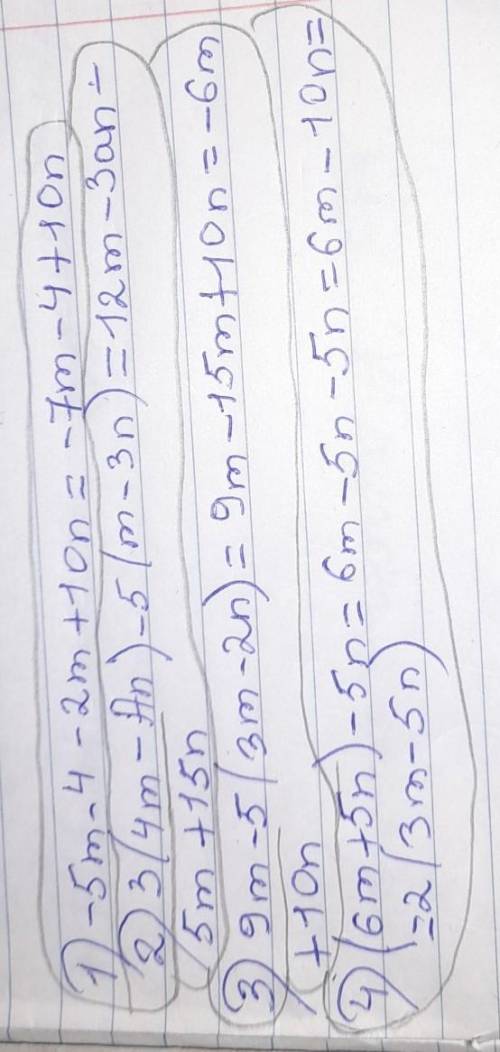 1) -5m-4-2m+10n=-7m-4+10n
2) 3(4m-An)-5(m-3n)=12m-3an-
5m+15n
3) 9m-5(3m-2n)=9m-15m+10n=-6m
+10n
4) (6m+5n)-5n=6m-5n-5n=6m-10n=
=2(3m-5n)